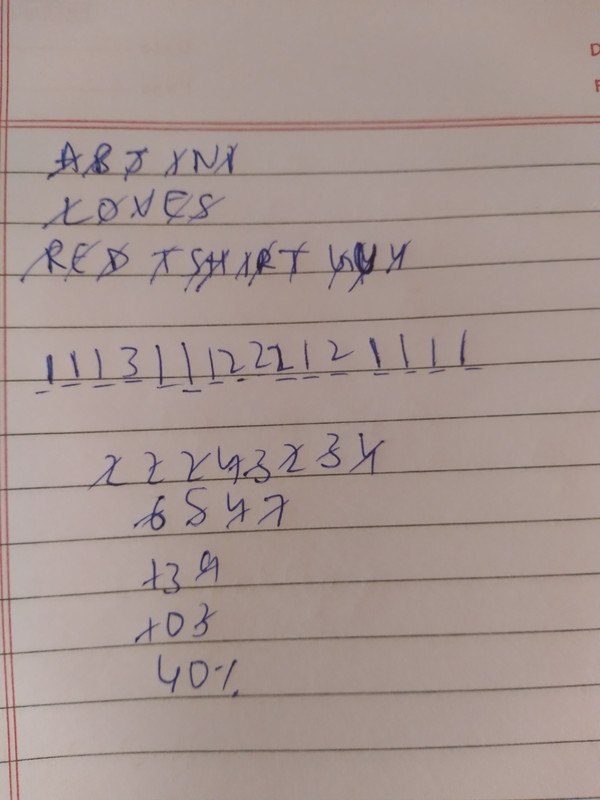 ABJ INI
LOVES
RED TSHIRT GUY
1113111222121111
22243234
6547
139
103
40%